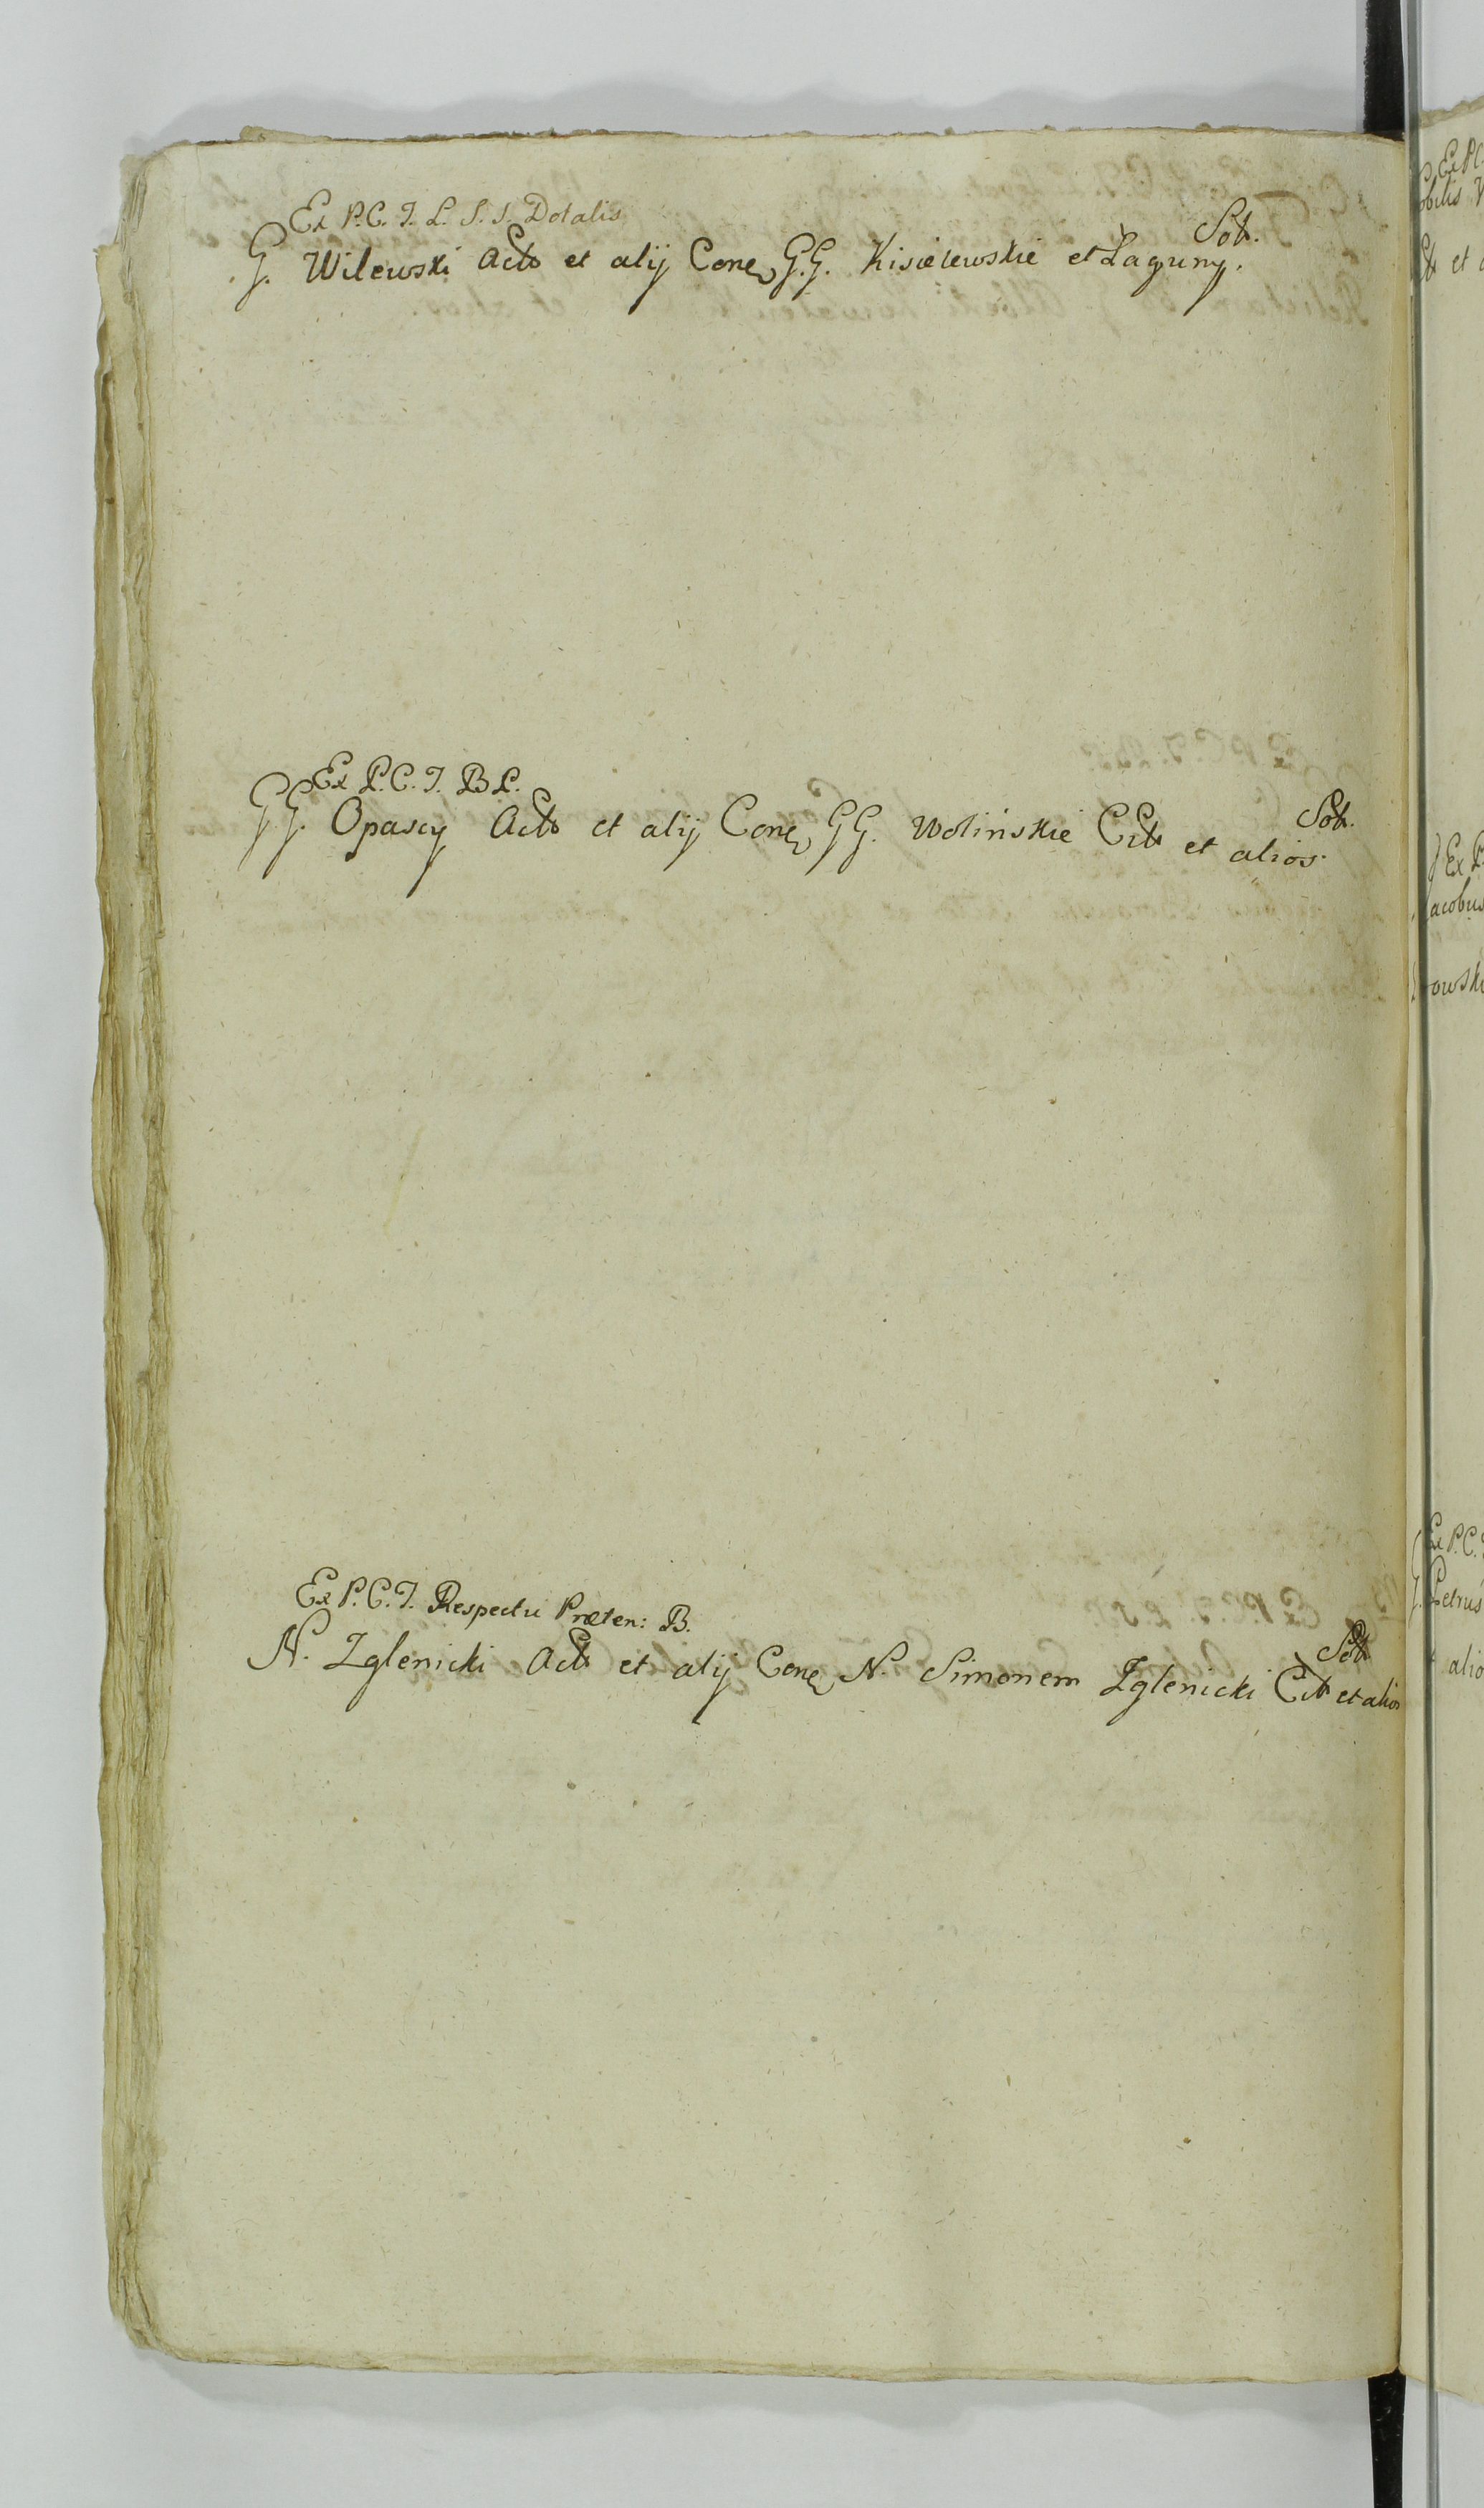 Ex P. C. T. L. S. S. Dotalis Sot.
G. Wilewski Act et alij Cone G.G. Kisielewskie et Łaguny.
Ex P. C. T. B P. Sot.
GG. Opascy Act et alij Cone GG. Wolińskie Cit et alios.
Ex P. C. T. Respectu Præten: B. Sot
N. Zglenicki Act et alij Cone N. Simonem Zglenicki Cit et alios
Ex P.C.
et
Ex P.
acobus
owski
Ex P.C.
Petrus
alio